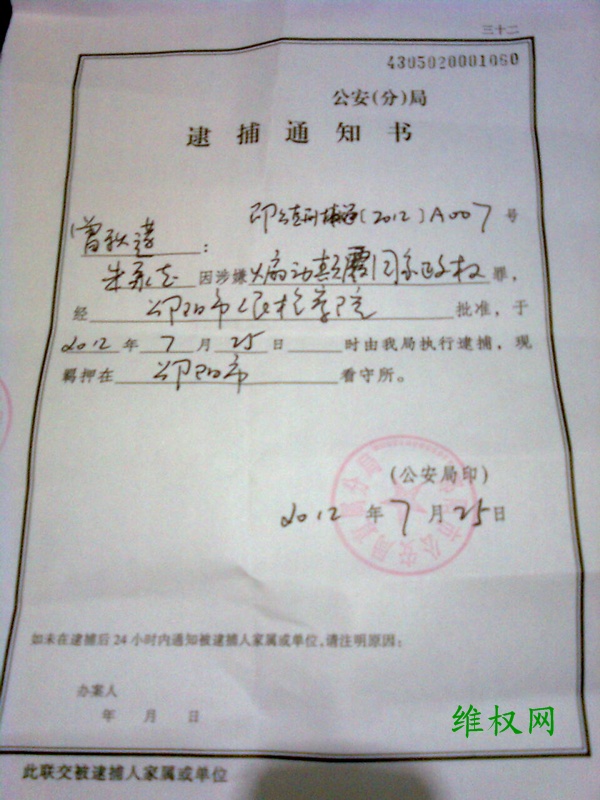 三十二
4305020001060
公安(分)局
逮捕通知书
(2012)A007号
曾秋莲：
朱承志因涉嫌煽动颠覆国家政权罪，
经邵阳市人民检察院批准，于
2012年7月25日 时由我局执行逮捕，现
羁押在邵阳市看守所。
(公安局印)
2012年7月25日
如未在逮捕后24小时内通知被逮捕人家属或单位，请注明原因：
办案人
年 月 日
维权网
此联交被逮捕人家属或单位